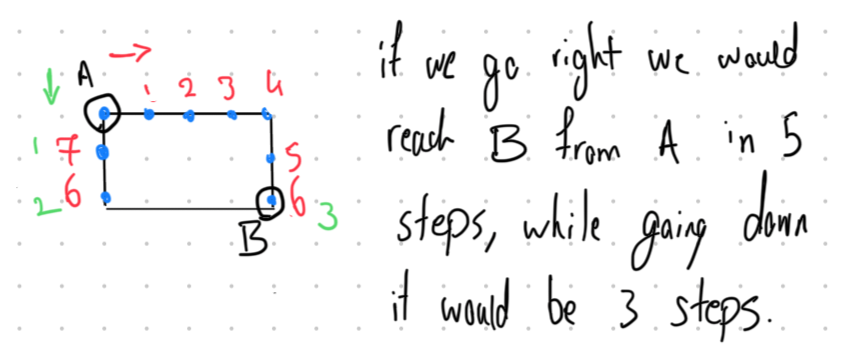 A
1 2 3 4
1 7 5
2 6 6 3
B
if we go right we would
reach B from A in 5
steps, while gaing down
it would be 3 steps.